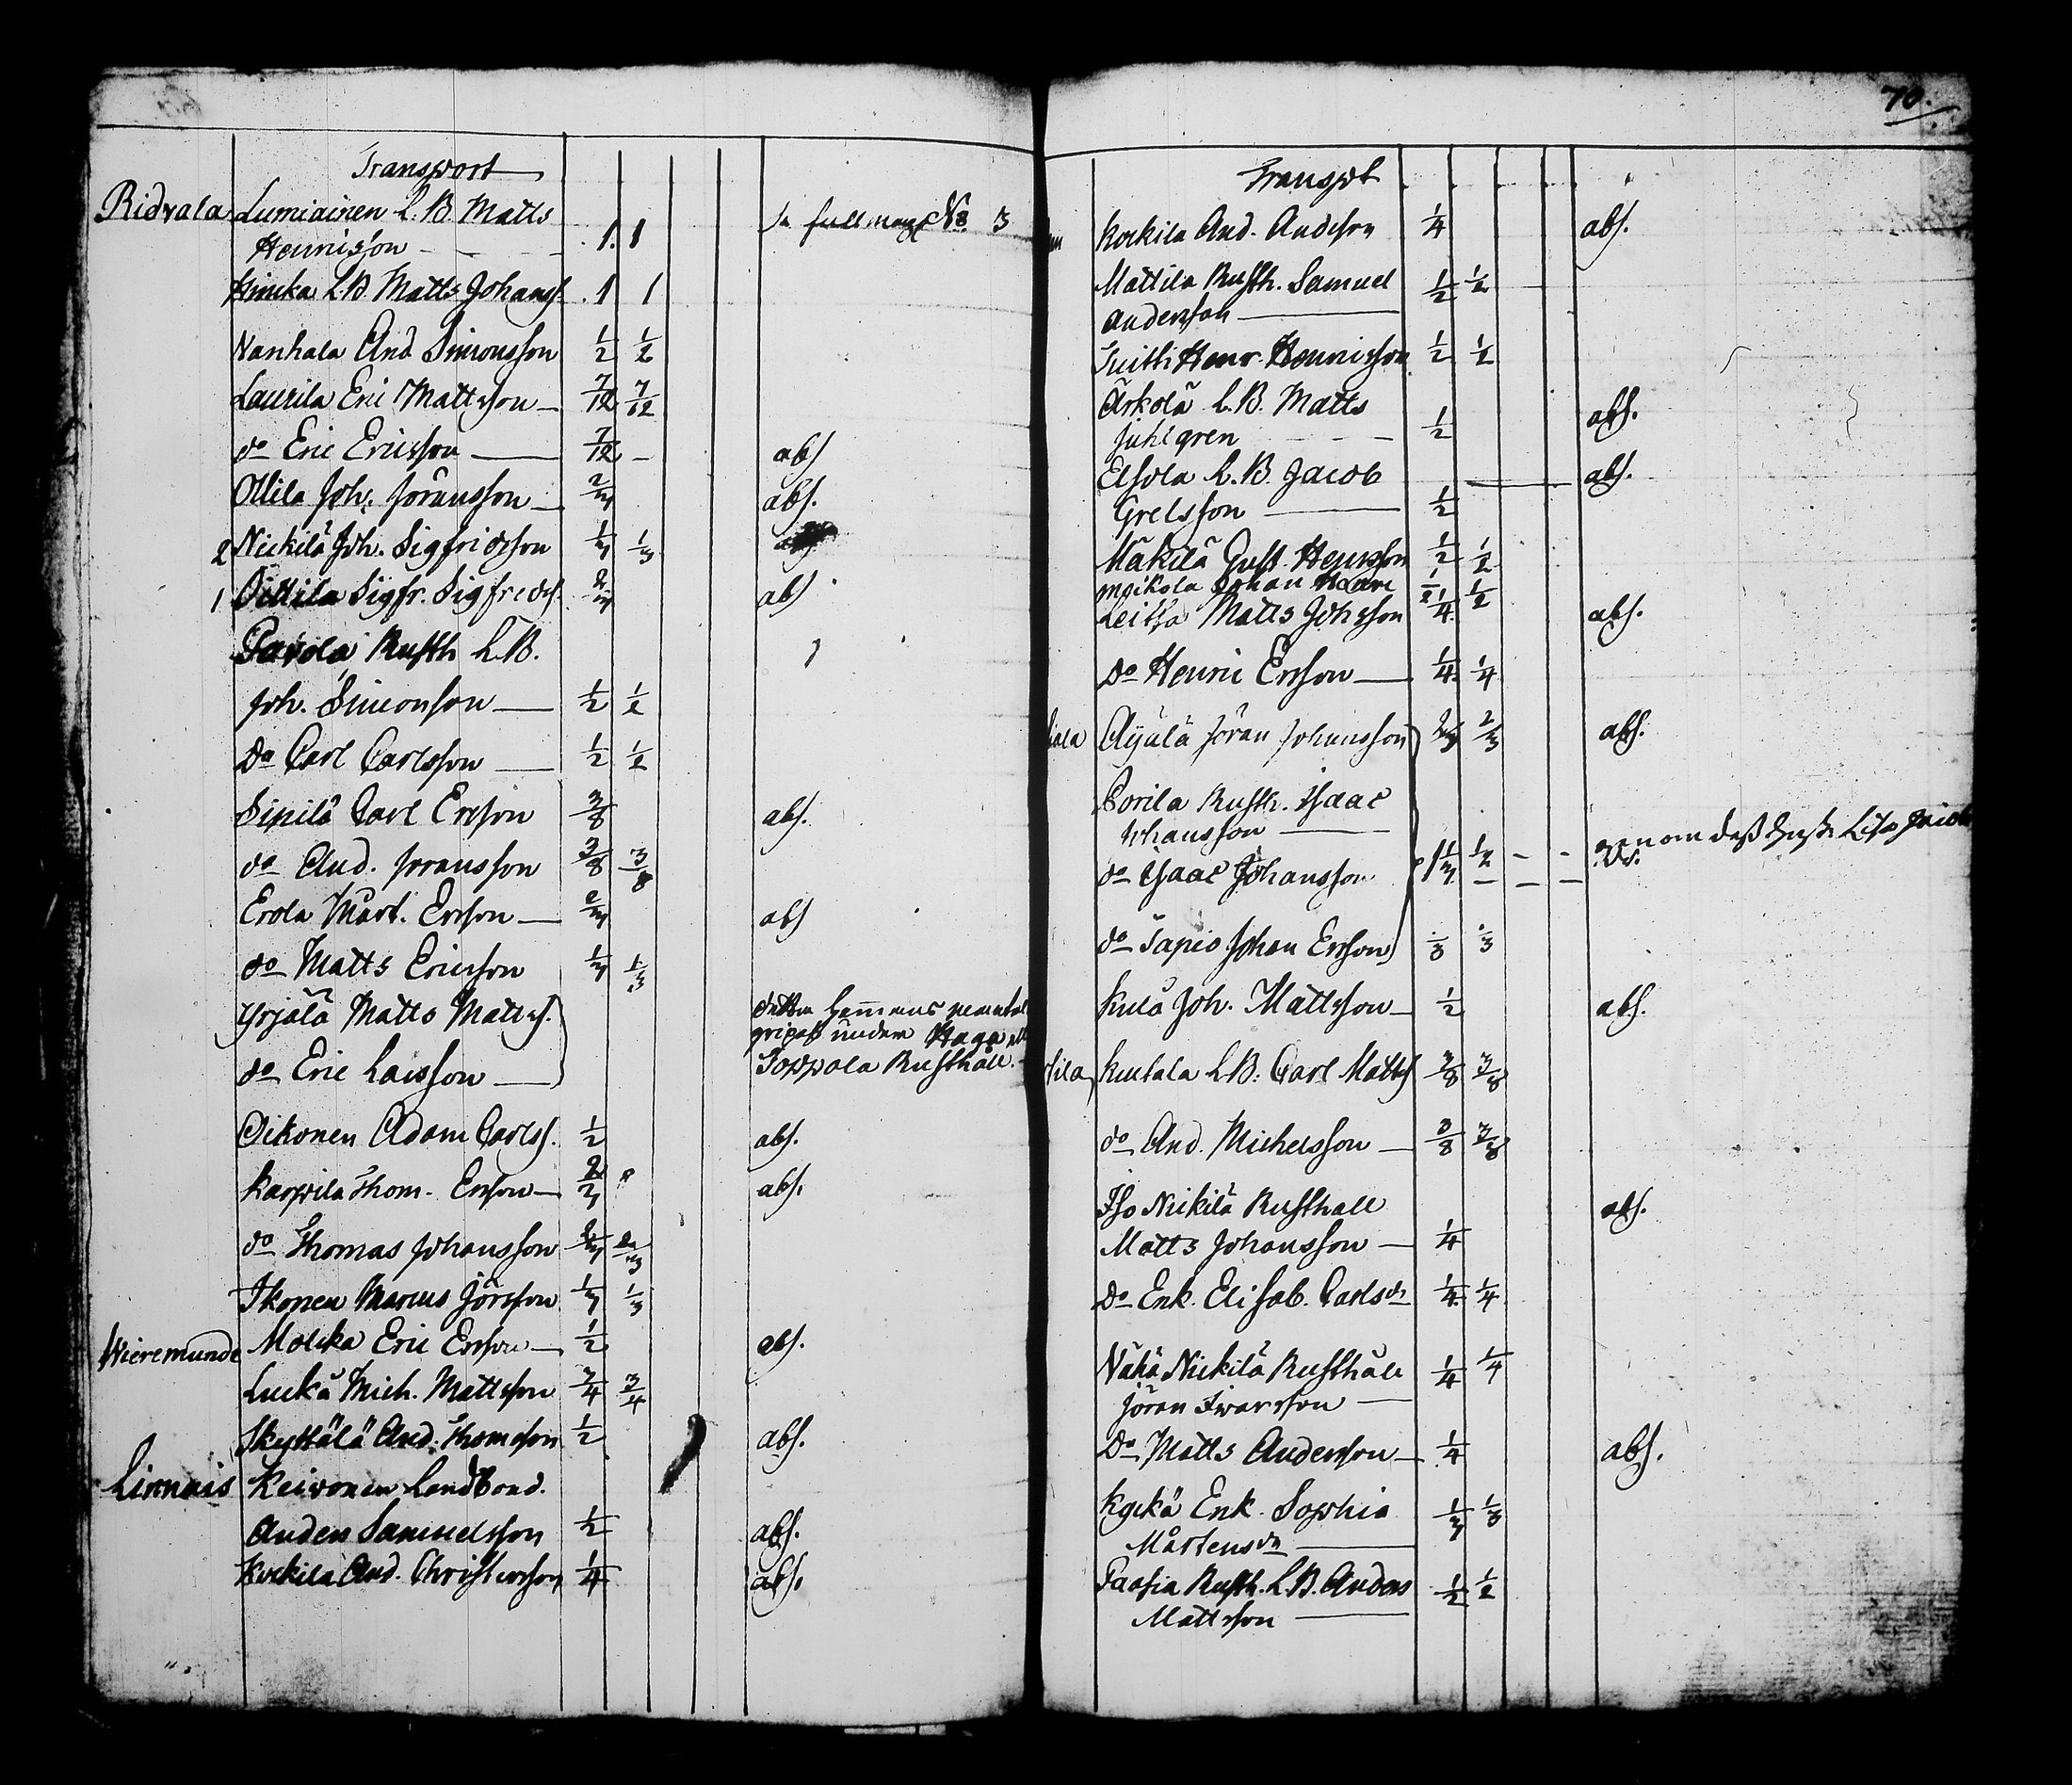 Transport
Ridvala Lumiainen L. B. Matts
Henricsson 1. 1 fullmagt No 3
L.B. Matts Johanss. 1 1
Nanhala And Simonsson 1/2 1/2
Laurila Eric Mattsson 7/12 7/12
do Eric Ericsson 7/12 - abs
Ollila Joh. Joransson 2/3 abs.
2 Nickilä Joh. Sigfridsson 1/3 1/3
1 Oittila Sigfr. Sigfredss. 2/3 abs
Pavola Rusth L.B.
Joh. Simonsson 1/2 1/2
Do Carl Carlsson 1/2 1/2
Sipilä Carl Ersson 3/8 abs.
do And. Joransson 3/8 3/8
Erola Mårt. Ersson 2/3 abs
do Matts Ericsson 1/3 1/3
Yrjälä Matts Matss.
under
do Eric Larsson Toppola Rusthåll.
Oikonen Adam Carlss. 1/2 abs.
Karpila Thom. Ersson 2/3 abs.
do Thomas Johansson 2/3 2/3
Ikonen Marcus Jörsson 1/3 1/3
Wieremunde Eric Ersson 1/2 abs.
Mich. Mattsson 3/4 3/4
Skyttälä And. Thomsson 1/2 abs.
Limnais Keivonen Landbond.
Anders Samuelsson 1/2 abs.
Kockila And. Christersson 1/4 abs.
70.
Transpt
Kockila And. Andsson 1/4 abs.
Mattila Rusth. Samuel 1/2 1/2
Andersson
Henr. Henricsson 1/2 1/2
Ärkölä L.B. Matts abs.
Juhlgren 1/2
Elsola L.B. Jacob abs.
Grelsson 1/2
Mäkilä Gust. Henrsson 1/2 1/2
Mäikola Johan 1/2 1/2
Matts Johsson 1/4 abs.
Do Henric Ersson 1/4 1/4
Äijälä Jöran Johansson 2/3 2/3 abs.
Porila Rusth. Isaac
Johansson
do Isaac Johansson 1 1/3 1/2
do Tapio Johan Ersson 1/3 1/3
Joh. Mattsson 1/2 abs.
L.B. Carl Matts 3/8 3/8
do And. Michelsson 3/8 3/8
Iso Nickilä Rusthåll abs.
Matts Johansson 1/4
Do Enk. Elisab. Carlsdr 1/4 1/4
Vähä Nickilä Rusthåll 1/4 1/4
Jöran Iwarsson
Do Matts Andersson 1/4 abs.
Enk. Sophia 1/3 1/3
Mårtensdr
Rusth. L.B. Anders 1/2 1/2
Mattsson